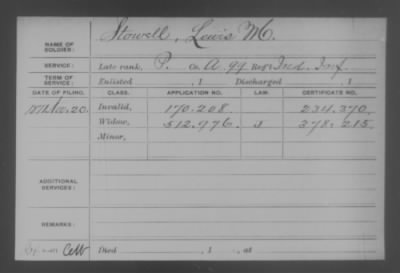 NAME OF SOLDIER: Stowell, Lewis M.
SERVICE: Late rank, P. Co. A 99 Reg't Ind. Inf.
TERM OF SERVICE: Enlisted , 1 Discharged , 1
DATE OF FILING. CLASS. APPLICATION NO. LAW. CERTIFICATE NO.
Invalid, 170.208 234.370.
Widow, 512.976. 378.215.
Minor,
ADDITIONAL SERVICES:
REMARKS:
Died , 1 , at